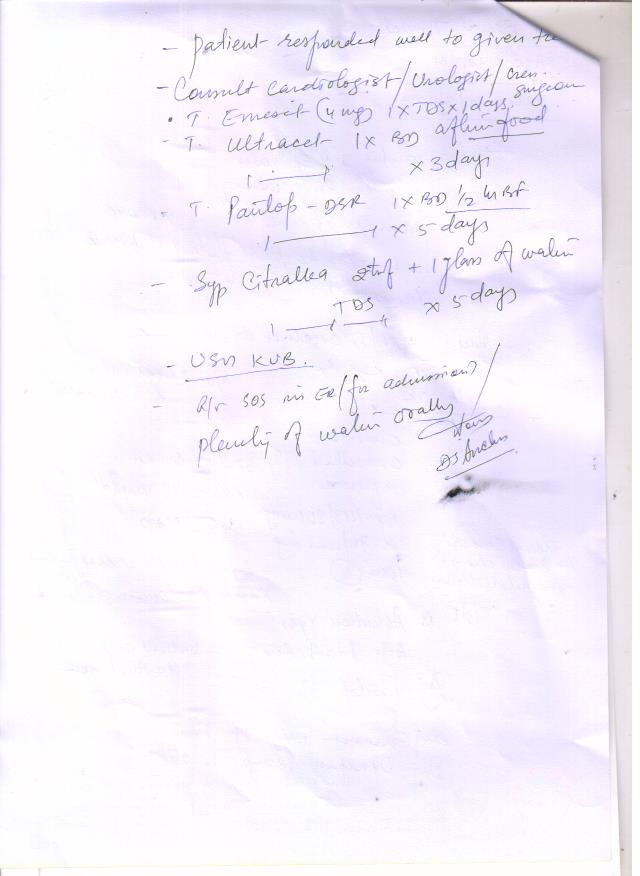 - Patient responded well to given tre
- Consult cardiologist/Urologist/Gen. Surgeon
• T. Emeset (4mg) 1 x TDS x 1 days.
- T. Ultracet 1 x BD after food
1 — 1 x 3 days
- T. Pantop-DSR 1 x BD 1/2 hr BF
1 — 1 x 5 days
- Syp Citralka 2tsf + 1 glass of water
TDS
1 — 1 — 1 x 5 days
- USG KUB.
- R/v SOS in ER (for admission)/
plenty of water orally